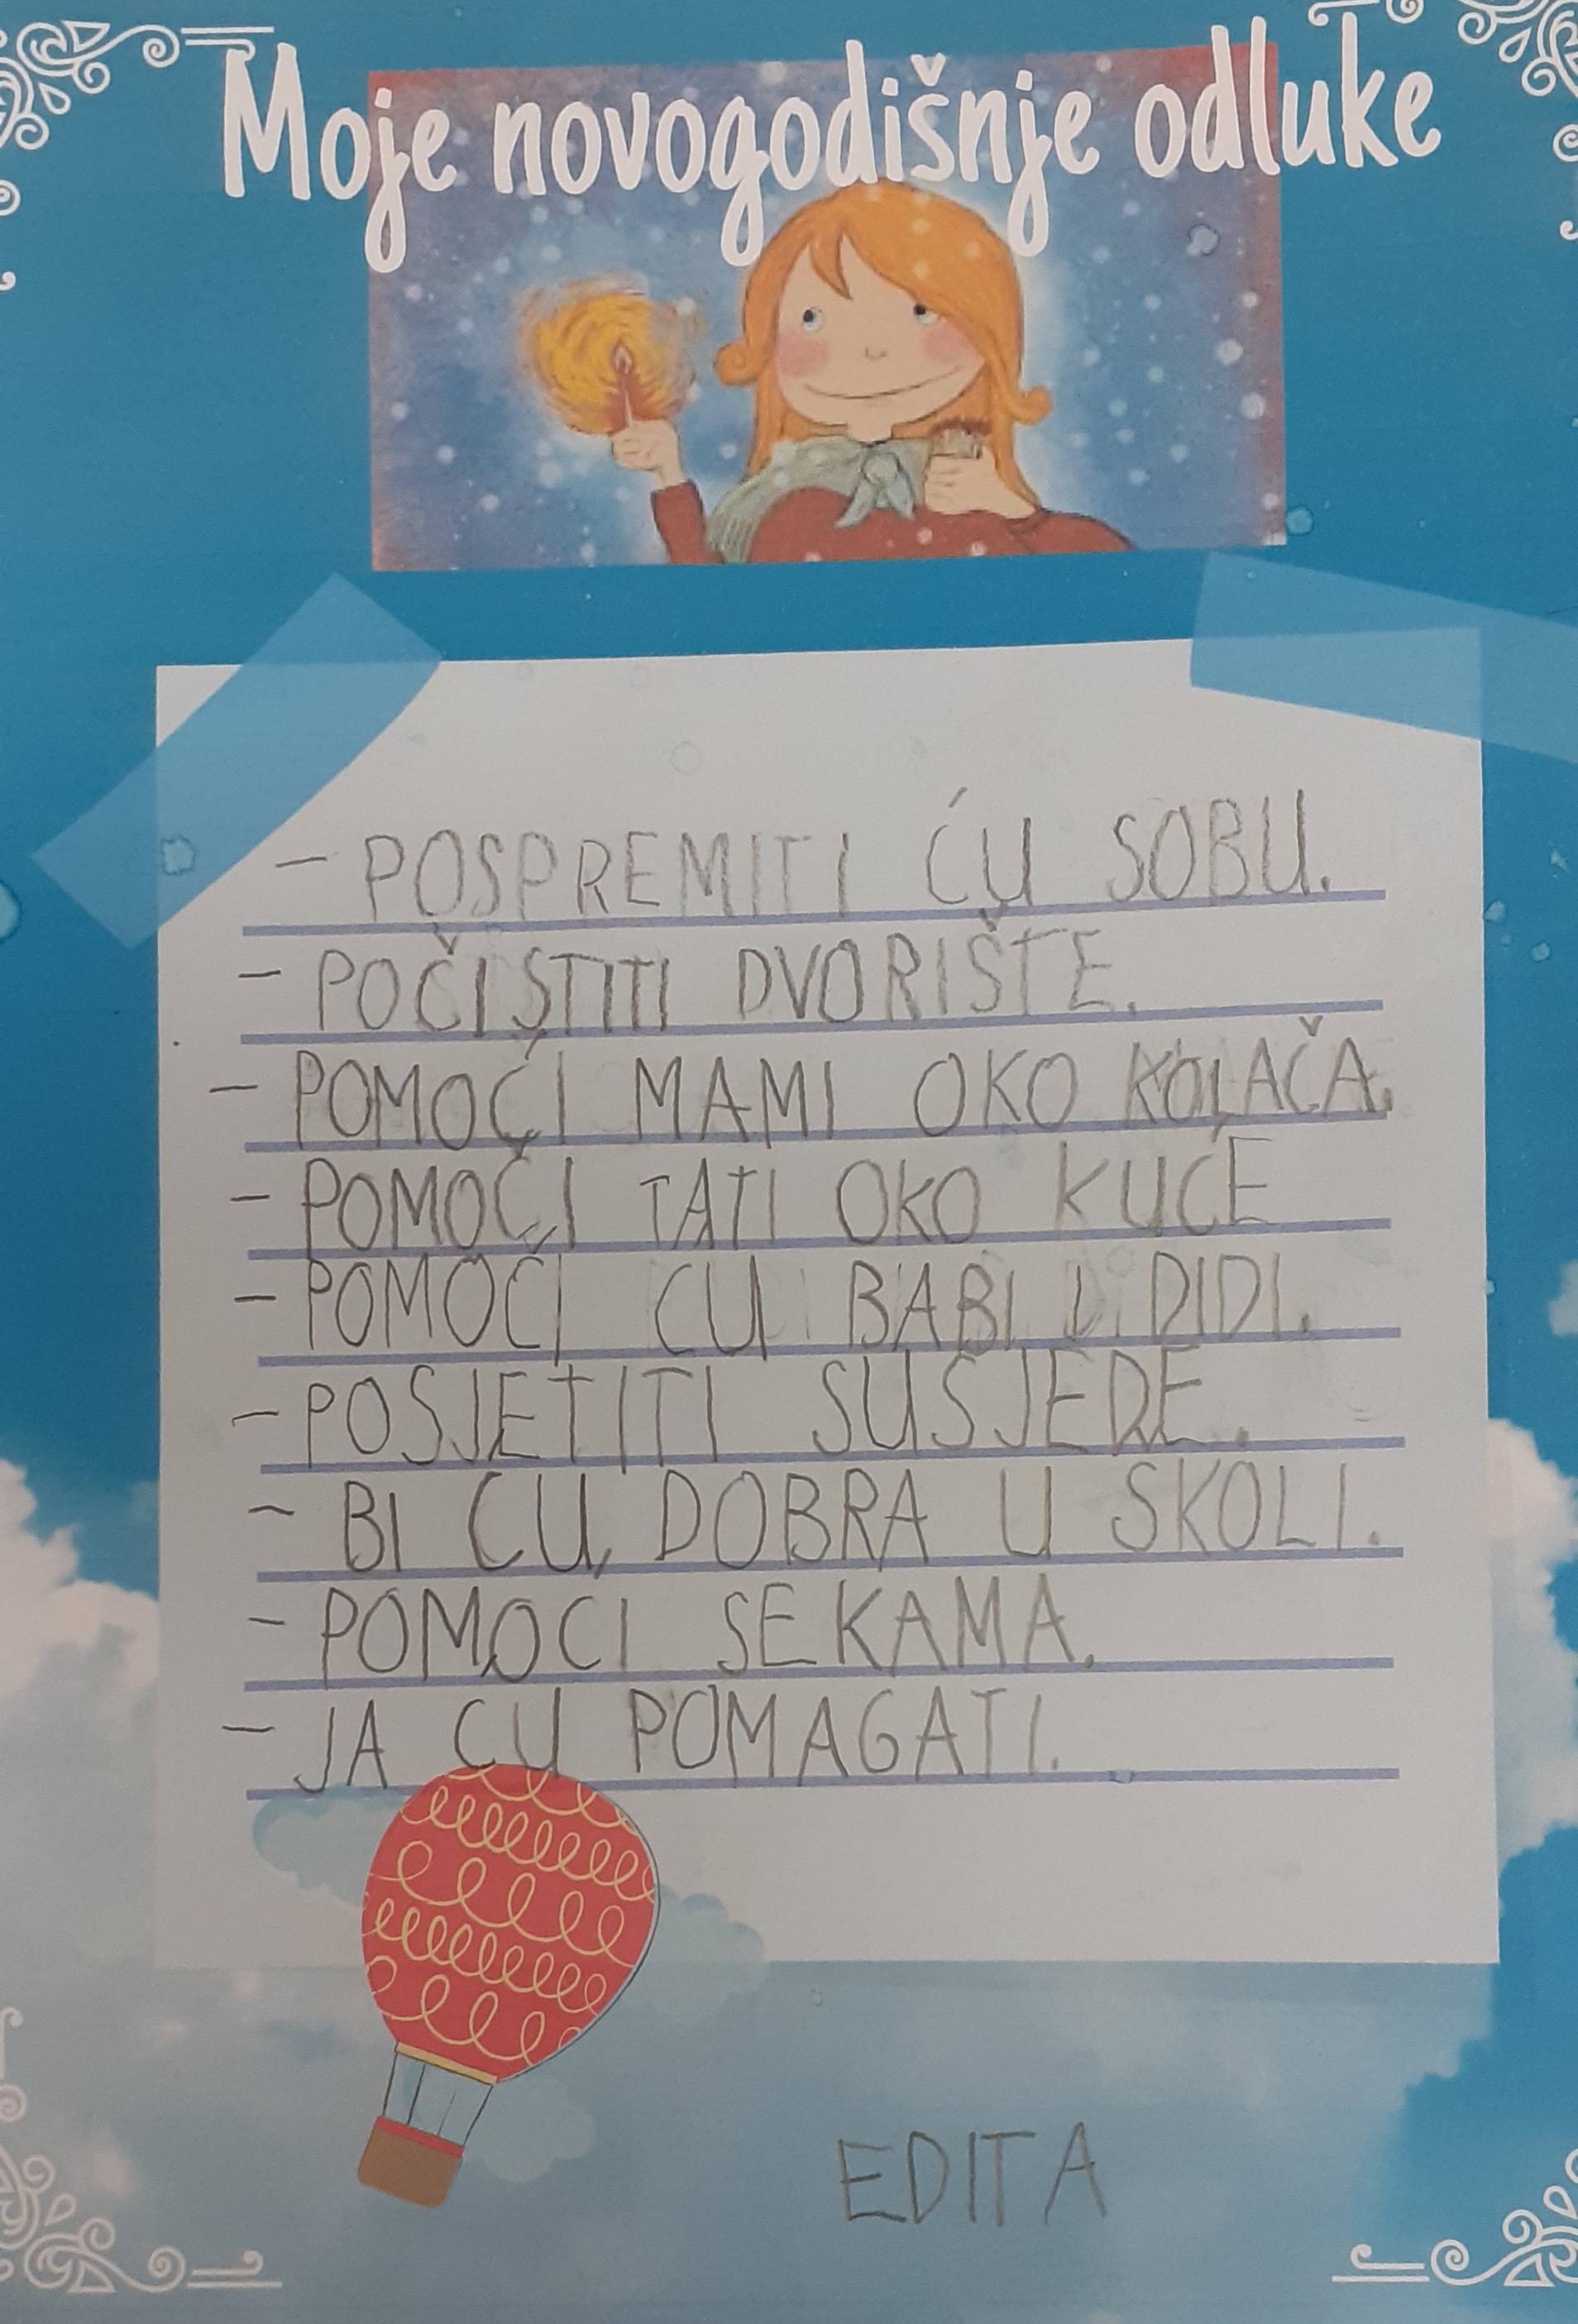 Moje novogodišnje odluke
- POSPREMITI ĆU SOBU.
- POČISTITI DVORIŠTE.
- POMOĆI MAMI OKO KOLAČA.
- POMOČI TATI OKO KUCE
- POMOĆI CU BABI I DIDI.
- POSJETITI SUSJEDE.
- BI CU DOBRA U SKOLI.
- POMOCI SEKAMA.
- JA CU POMAGATI.
EDITA